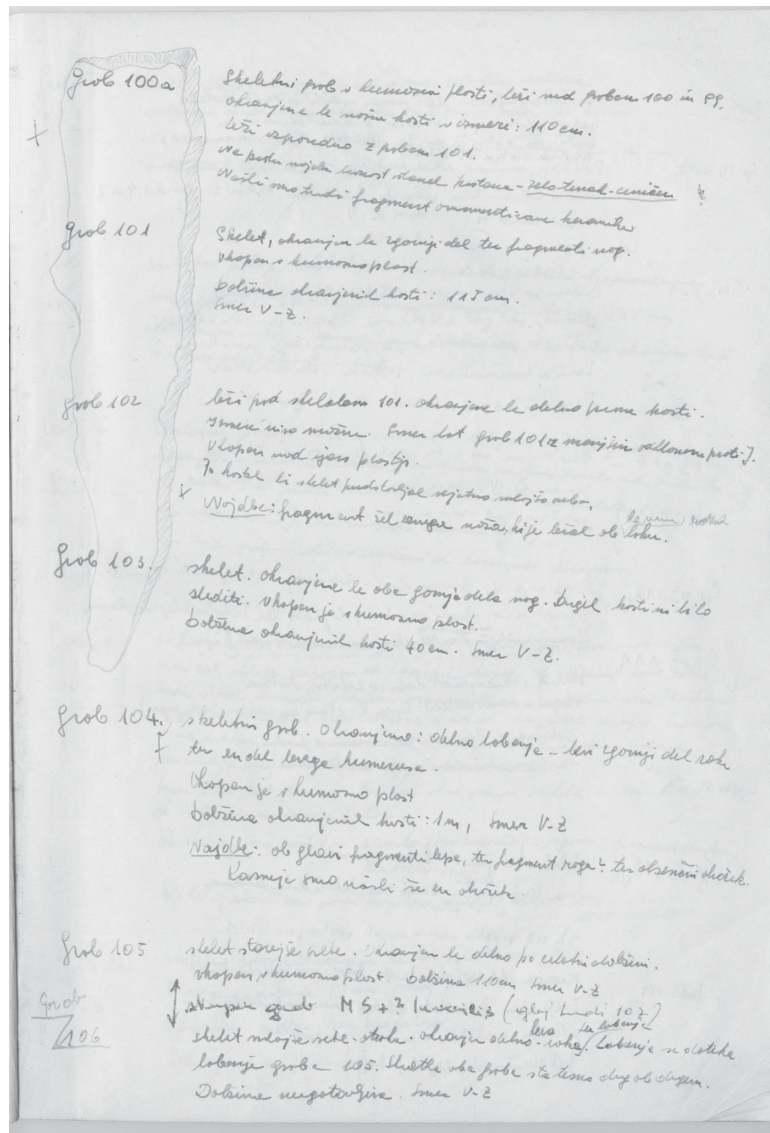 Grob 100a Skeletni grob v humozni plasti, leži nad grobom 100 in 99.
ohranjene le nožne kosti v izmeri: 110 cm.
leži vzporedno z grobom 101.
Našli smo tudi fragment ornamentirane keramike
Grob 101 Skelet, ohranjen le zgornji del ter fragmenti nog.
vkopan v humozno plast.
Dolžina ohranjenih kosti: 115 cm.
Smer V-Z.
Grob 102 leži pod skeletom 101. ohranjene le delno kosti.
Izmere niso možne. Smer kot grob 101 z manjšim odklonom proti J.
Vkopan nad plastjo.
Po kosteh bi skelet predstavljal verjetno mlajšo osebo,
Najdbe: fragment žel. noža, ki je ležal ob boku.
Grob 103. skelet. Ohranjene le oba gornja dela nog. Drugih kosti ni bilo
slediti. Vkopan je v humozno plast.
Dolžina ohranjenih kosti 40 cm. Smer V-Z.
Grob 104. skeletni grob. Ohranjeno: delno lobanja - levi zgornji del roke
ter en del levega humerusa.
Vkopan je v humozno plast
Dolžina ohranjenih kosti: 1m, Smer V-Z
Najdbe: ob glavi fragmenti lepe, ter fragment roga? ter obsenčni obroček.
Kasneje smo našli še en obroček.
Grob 105 skelet starejše osebe. Ohranjen le delno po celotni dolžini.
vkopan v humozno plast. Dolžina 110 cm Smer V-Z
skupen grob MS+? (glej tudi 107)
Grob 106 skelet mlajše osebe - otroka. ohranjen delno - leva roka ter lobanja. Lobanja se dotika
lobanje groba 105. Skeleta obe groba sta tesno drug ob drugem.
Dolžina neugotovljiva. Smer V-Z